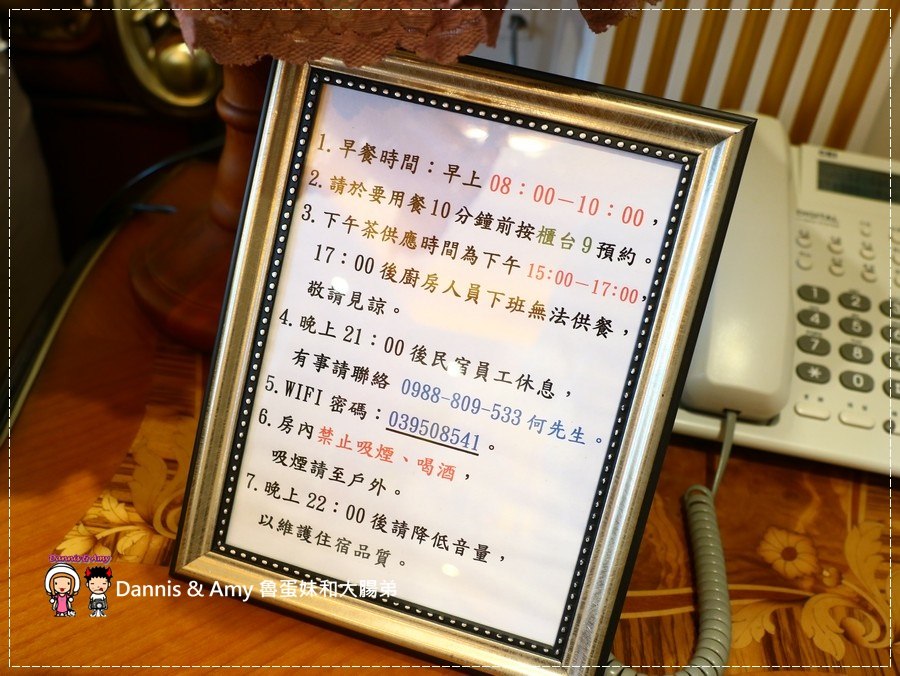 1. 早餐時間：早上 08：00－10：00，
2. 請於要用餐 10 分鐘前按櫃台 9 預約。
3. 下午茶供應時間為下午 15:00－17:00，
17：00 後廚房人員下班無法供餐，
敬請見諒。
4. 晚上 21：00 後民宿員工休息，
有事請聯絡 0988-809-533 何先生。
5. WIFI 密碼：039508541。
6. 房內禁止吸煙、喝酒，
吸煙請至戶外。
7. 晚上 22：00 後請降低音量，
以維護住宿品質。
1 2
4 5
7 8
* 0
Dannis & Amy
Dannis & Amy 魯蛋妹和大腸弟